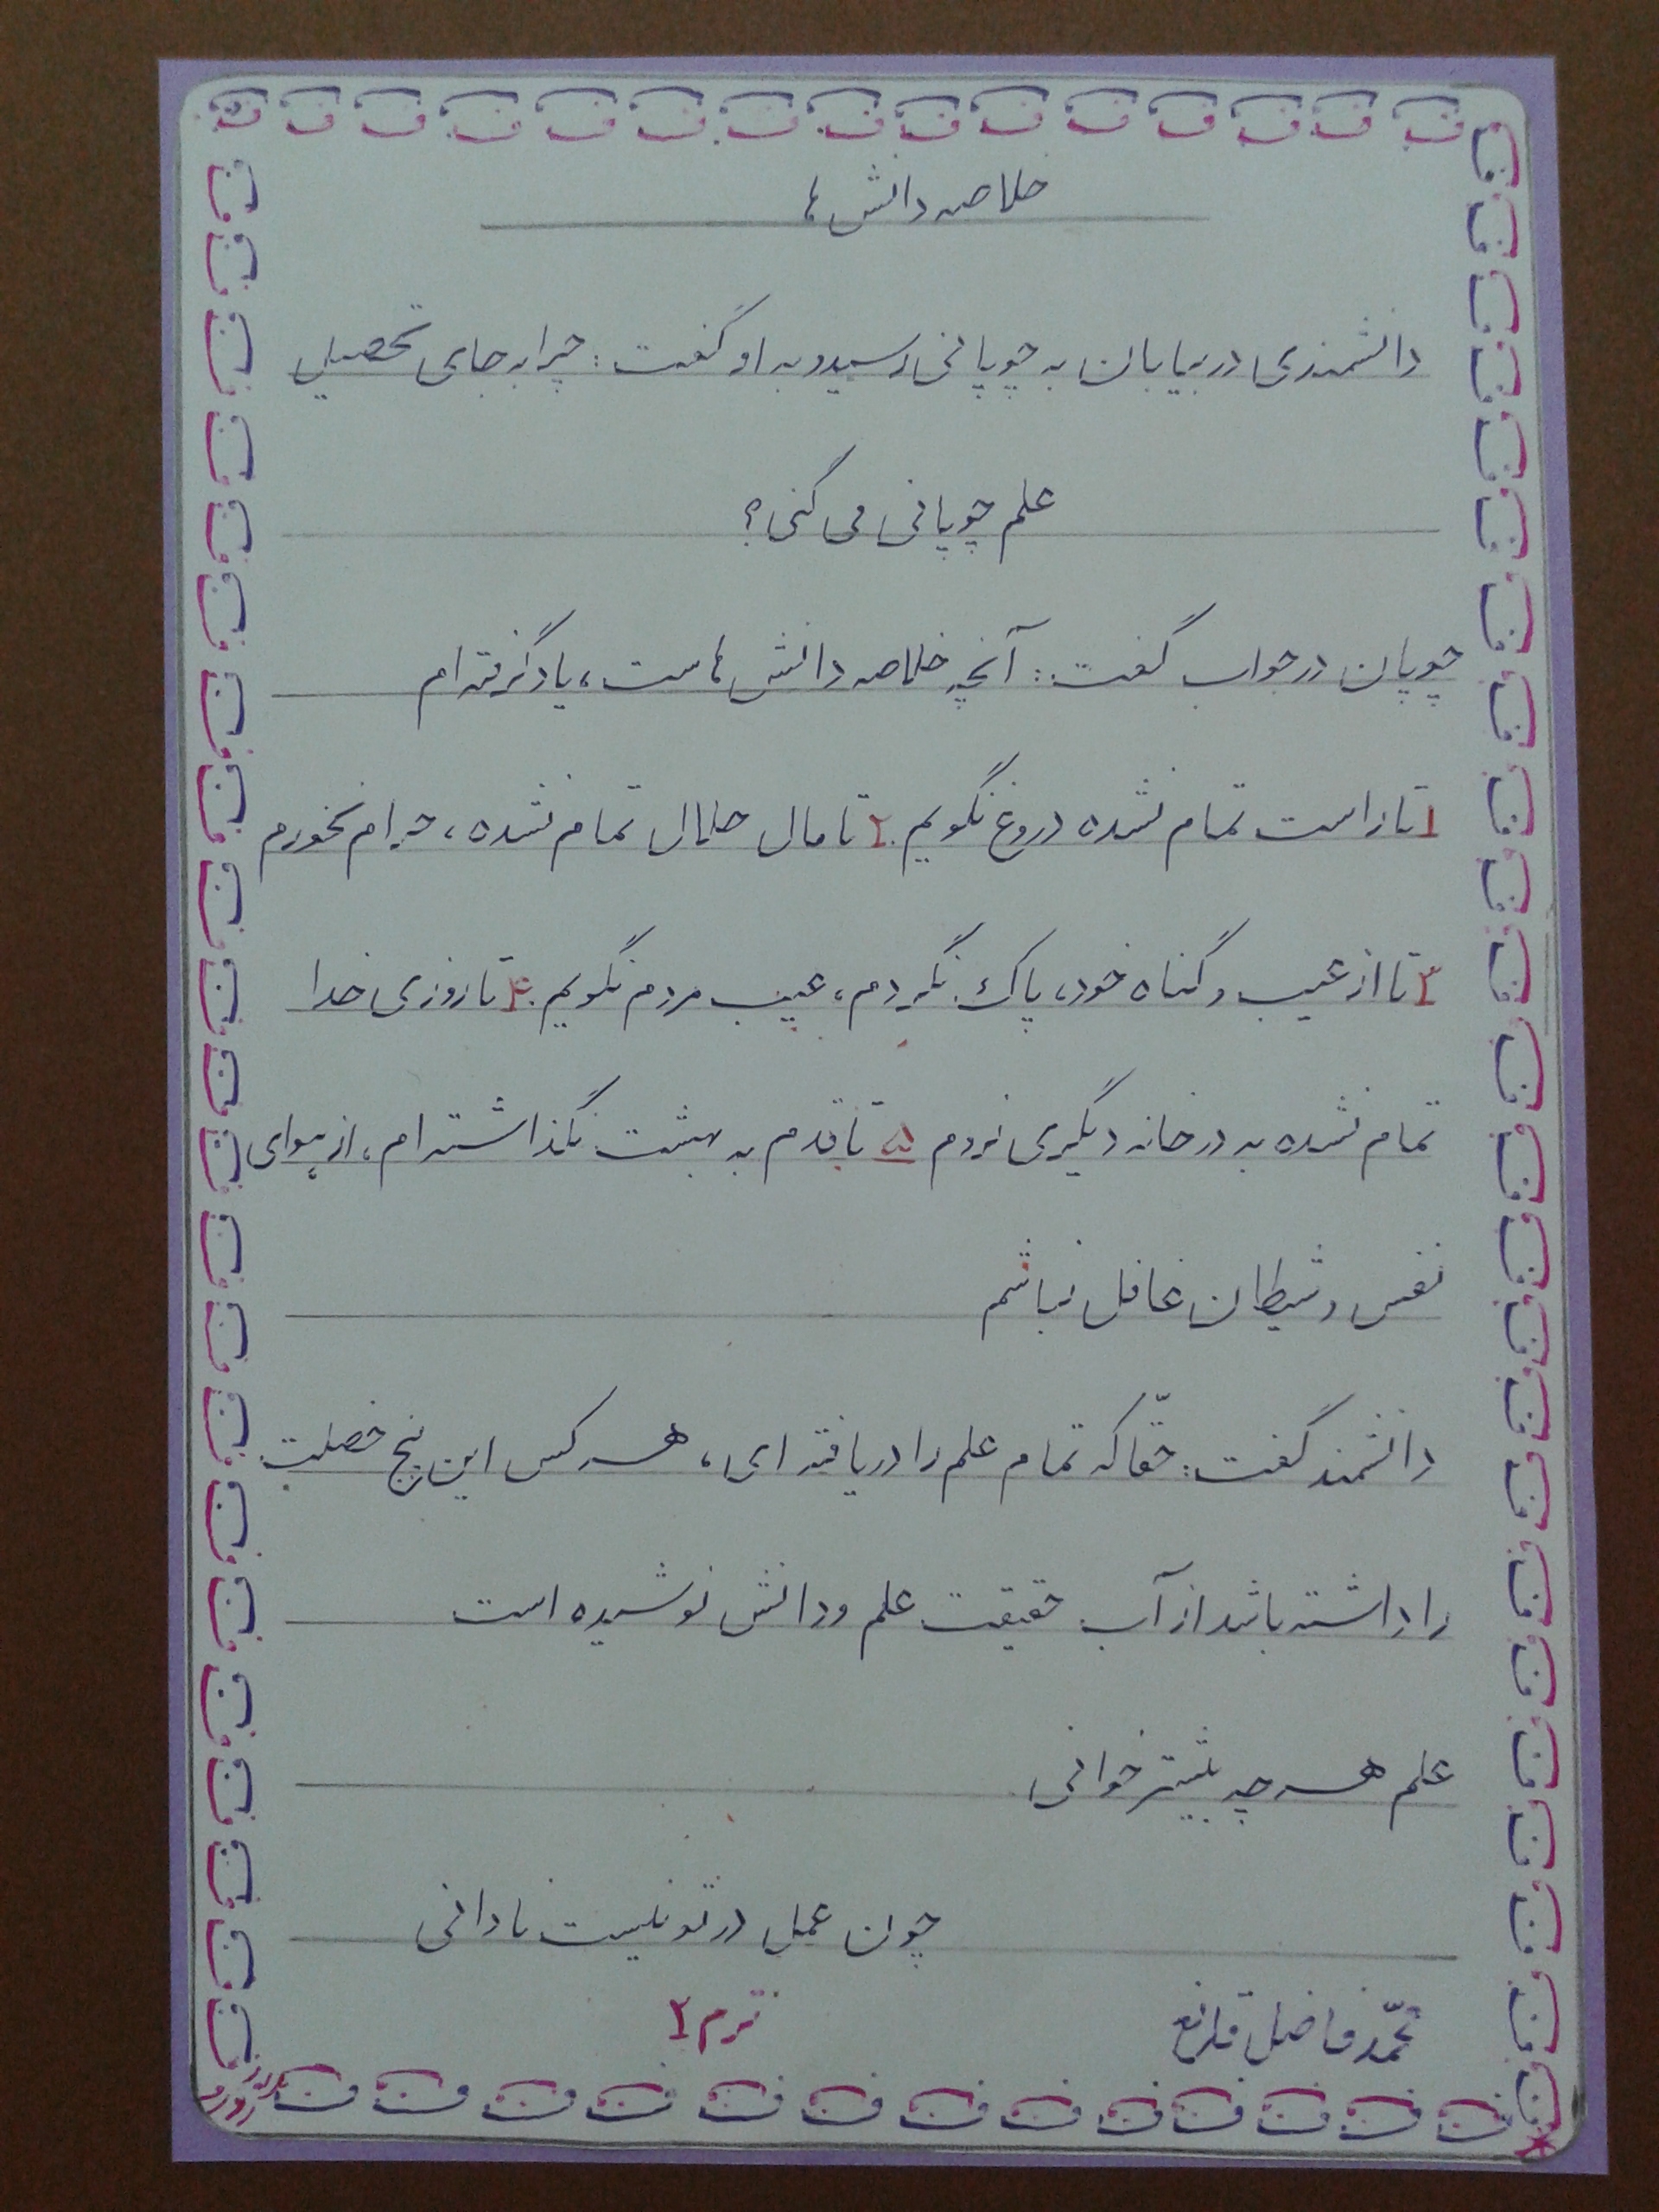 خلاصه دانش ها
دانشمندی در بیابان به چوپانی رسید و به او گفت: چرا به جای تحصیل
علم چوپانی می کنی؟
چوپان در جواب گفت: آنچه خلاصه دانش هاست، یاد گرفته ام
۱ تا راست تمام نشده دروغ نگویم. ۲ تا مال حلال تمام نشده، حرام نخورم
۳ تا از عیب و گناه خود، پاک نگردم، عیب مردم نگویم. ۴ تا روزی خدا
تمام نشده به در خانه دیگری نروم ۵ تا قدم به بهشت نگذاشته ام، از هوای
نفس و شیطان غافل نباشم
دانشمند گفت: حقّا که تمام علم را دریافته ای، هر کس این پنج خصلت
را داشته باشد از آب حقیقت علم و دانش نوشیده است
علم هر چه بیشتر خوانی
چون عمل در تو نیست نادانی
محمّد فاضل
ترم ۲